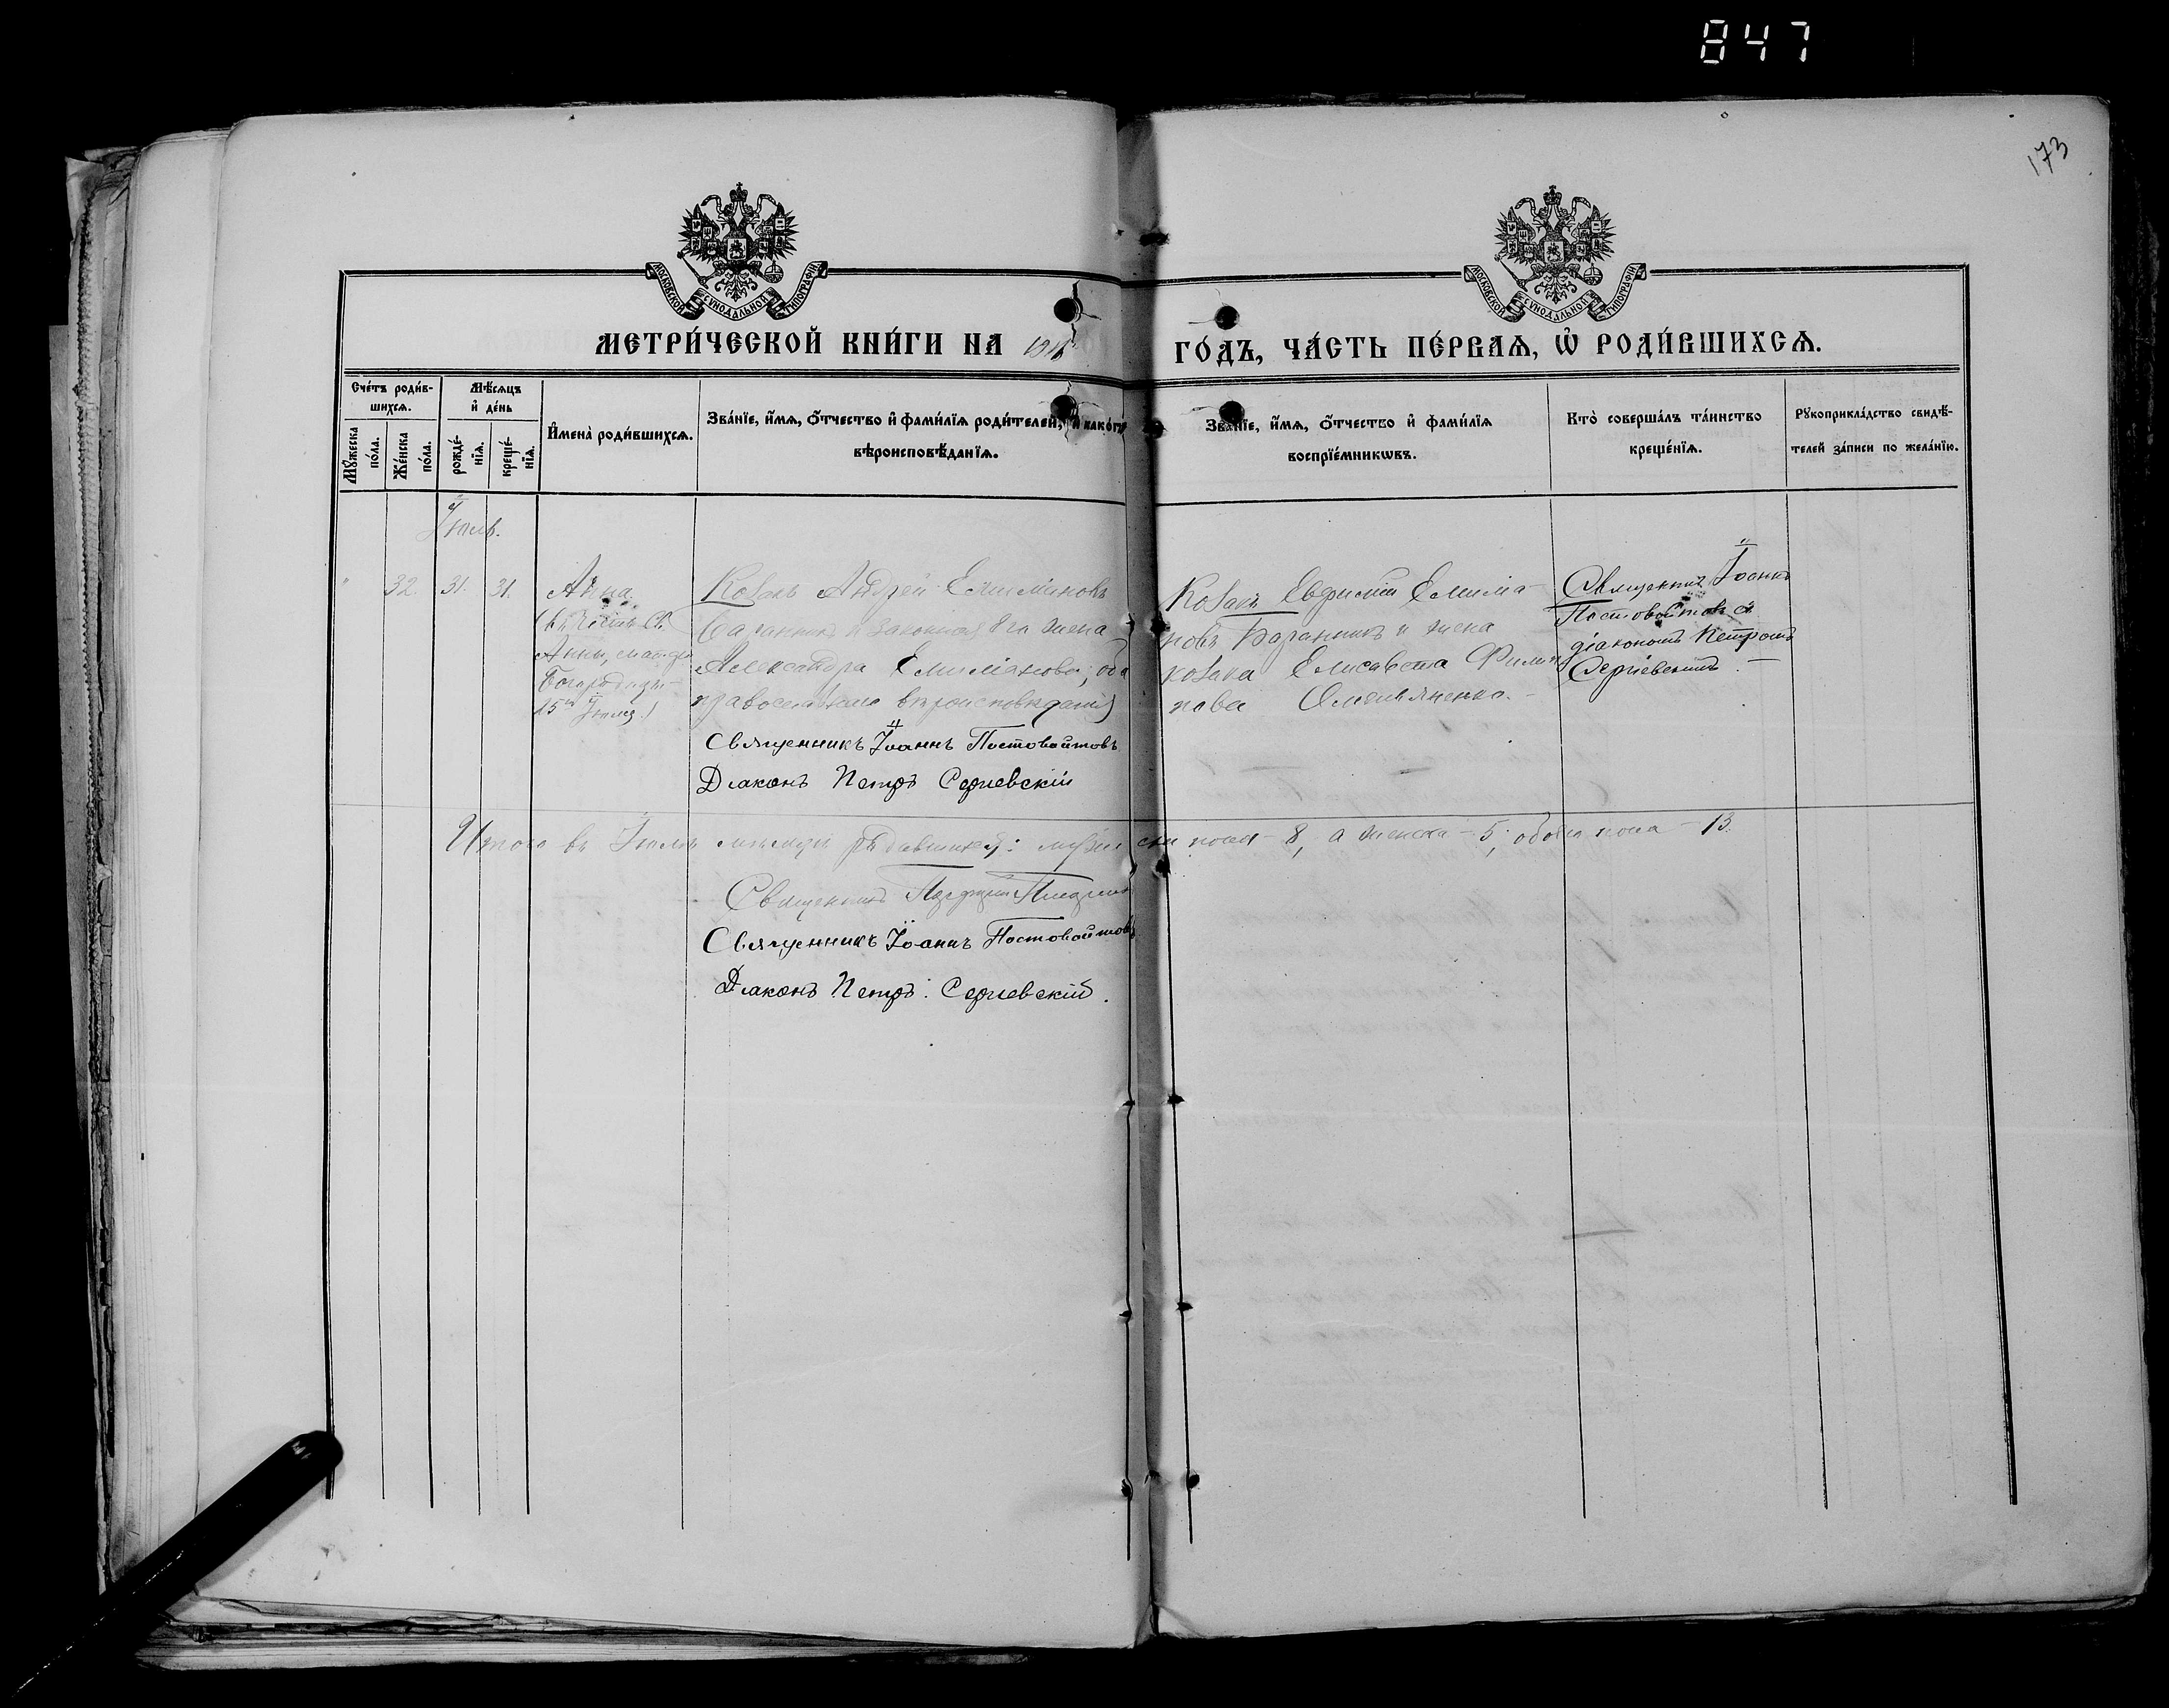 847
173
МОСКОВСКОЙ СѴНОДАЛЬНОЙ ТИПОГРАФІИ
МОСКОВСКОЙ СѴНОДАЛЬНОЙ ТИПОГРАФІИ
МЕТРИ́ЧЕСКОЙ КНИ́ГИ НА ГО́ДЪ, ЧА́СТЬ ПЕ́РВАѦ, Ѡ҆ РОДИ́ВШИХСѦ.
Сче́тъ роди́в-
шихсѧ.
Мꙋ́жеска по́ла.
Же́нска по́ла.
Мѣ́сѧцъ
и҆ де́нь
рожде́-
нїѧ.
креще́-
нїѧ.
И҆мена̀ роди́вшихсѧ.
Зва́нїе, и҆́мѧ, ѻ҆́тчество и҆ фами́лїѧ роди́телей, и҆ како́гѡ
вѣроисповѣ́данїѧ.
Зва́нїе, и҆́мѧ, ѻ҆́тчество и҆ фами́лїѧ
воспрїе́мникѡвъ.
Кто̀ соверша́лъ та́инство
креще́нїѧ.
Рꙋкоприкла́дство свидѣ́-
телей за́писи по жела́нїю.
Іюль.
32. 31. 31.
Анна
(въ честь Св.
Анны, матери
Богородицы
25го Іюля.)
Козакъ Андрей Емиліановъ
Баранникъ и законная его жена
Александра Емиліанова; оба
православнаго вѣроисповѣданія
Священникъ Іоаннъ Постовойтовъ
Діаконъ Петръ Сергіевскій
Козакъ Евфимій Емилiа-
новъ Баранникъ и жена
козака Елисавета Филип-
пова Омельяненко.
Священникъ Іоаннъ
Постовойтовъ съ
діакономъ Петромъ
Сергіевскимъ.
Итого въ Іюлѣ мѣсяцѣ родившихся: мужеска пола - 8, а женска - 5; обоего пола - 13.
Священникъ
Священникъ Іоаннъ Постовойтовъ
Діаконъ Петръ Сергіевскій.